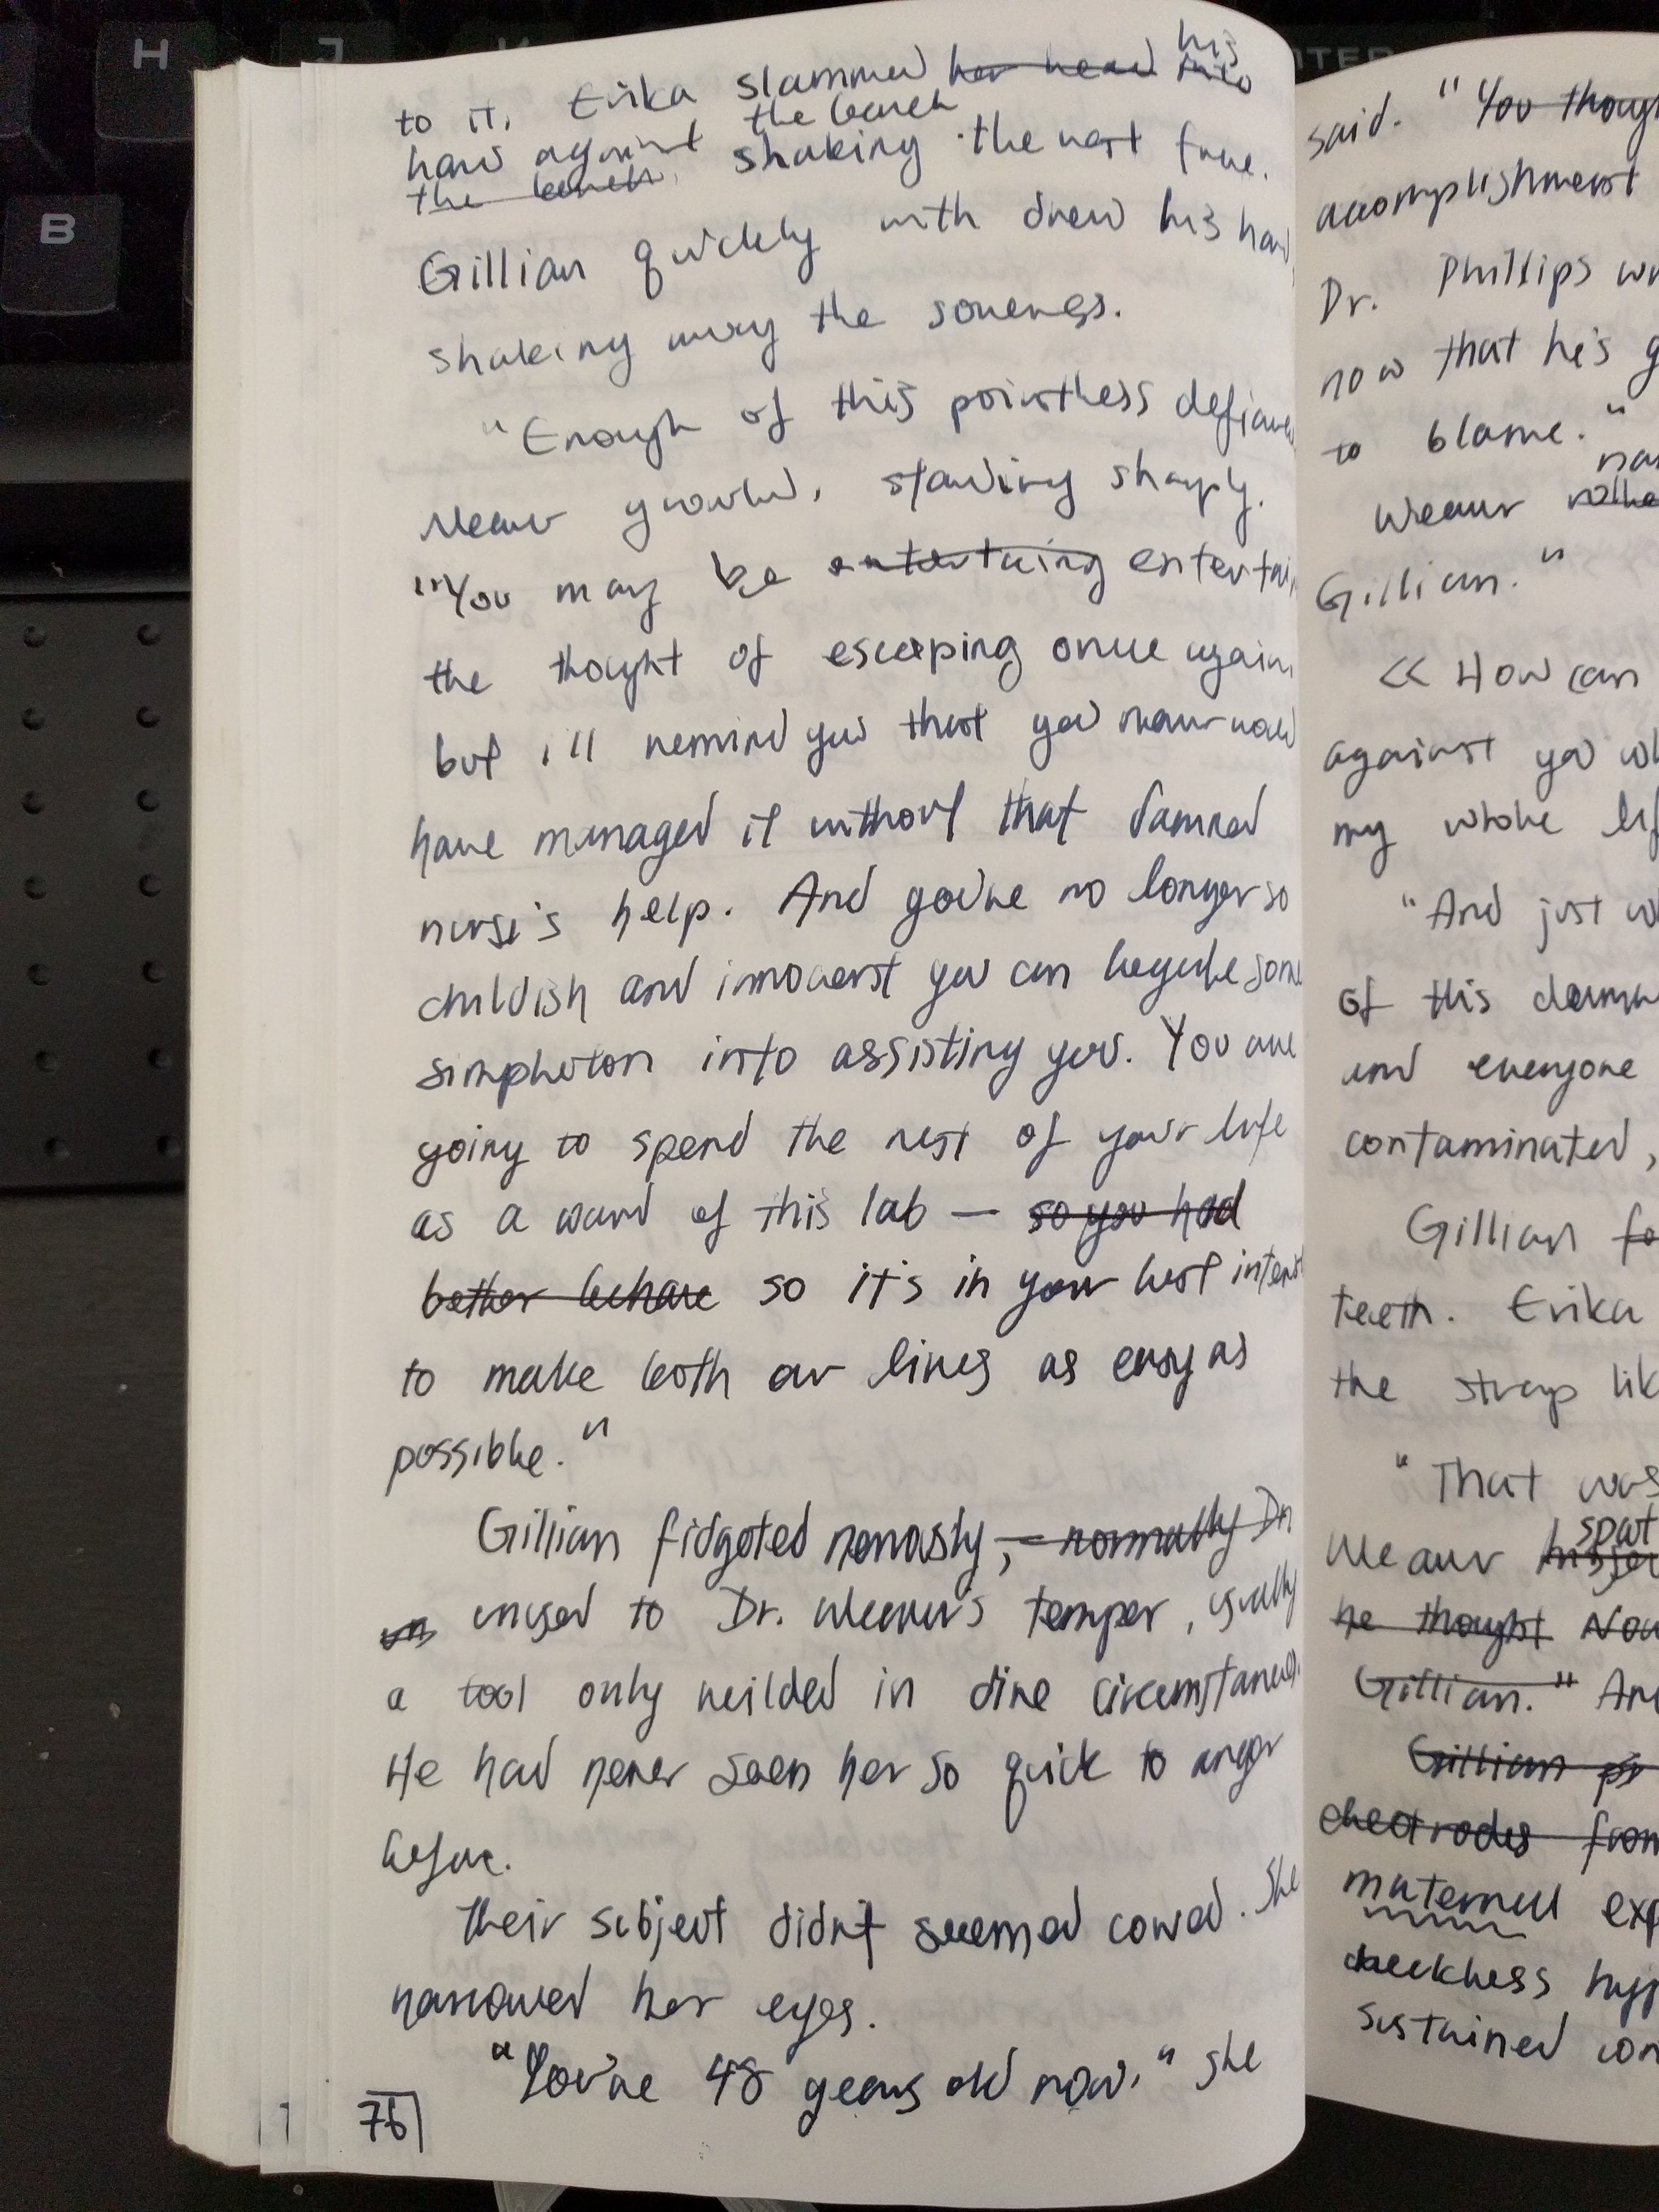 H
J
B
to it. Erika slammed her head into his
hand against the bench
the bench, shaking the next few.
Gillian quickly with drew his han
shaking away the soreness.
"Enough of this pointless defiance
Weaver growled, standing sharply.
"You may be entertaining entertai
the thought of escaping once again,
but i'll remind you that you never would
have managed it without that damned
nurse's help. And you're no longer so
childish and innocent you can beguile some
simpleton into assisting you. You are
going to spend the rest of your life
as a ward of this lab — so you had
better behave so it's in your best interest
to make both our lives as easy as
possible."
Gillian fidgeted nervously, — normally Dr.
un unused to Dr. Weaver's temper, usually
a tool only weilded in dire circumstances.
He had never seen her so quick to anger
before.
Their subject didn't seemed cowed. She
narrowed her eyes.
"You're 48 years old now," she
76
said. "You though
accomplishment
Dr. Phillips w
now that he's g
to blame."
Weaver
Gillian."
« How can
against you wh
my whole lif
"And just w
of this damn
and everyone
contaminated,
Gillian fo
teeth. Erika
the strap lik
"That was
Weaver spat
he thought Now
Gillian." An
Gillian
electrodes from
maternal exp
sustained con